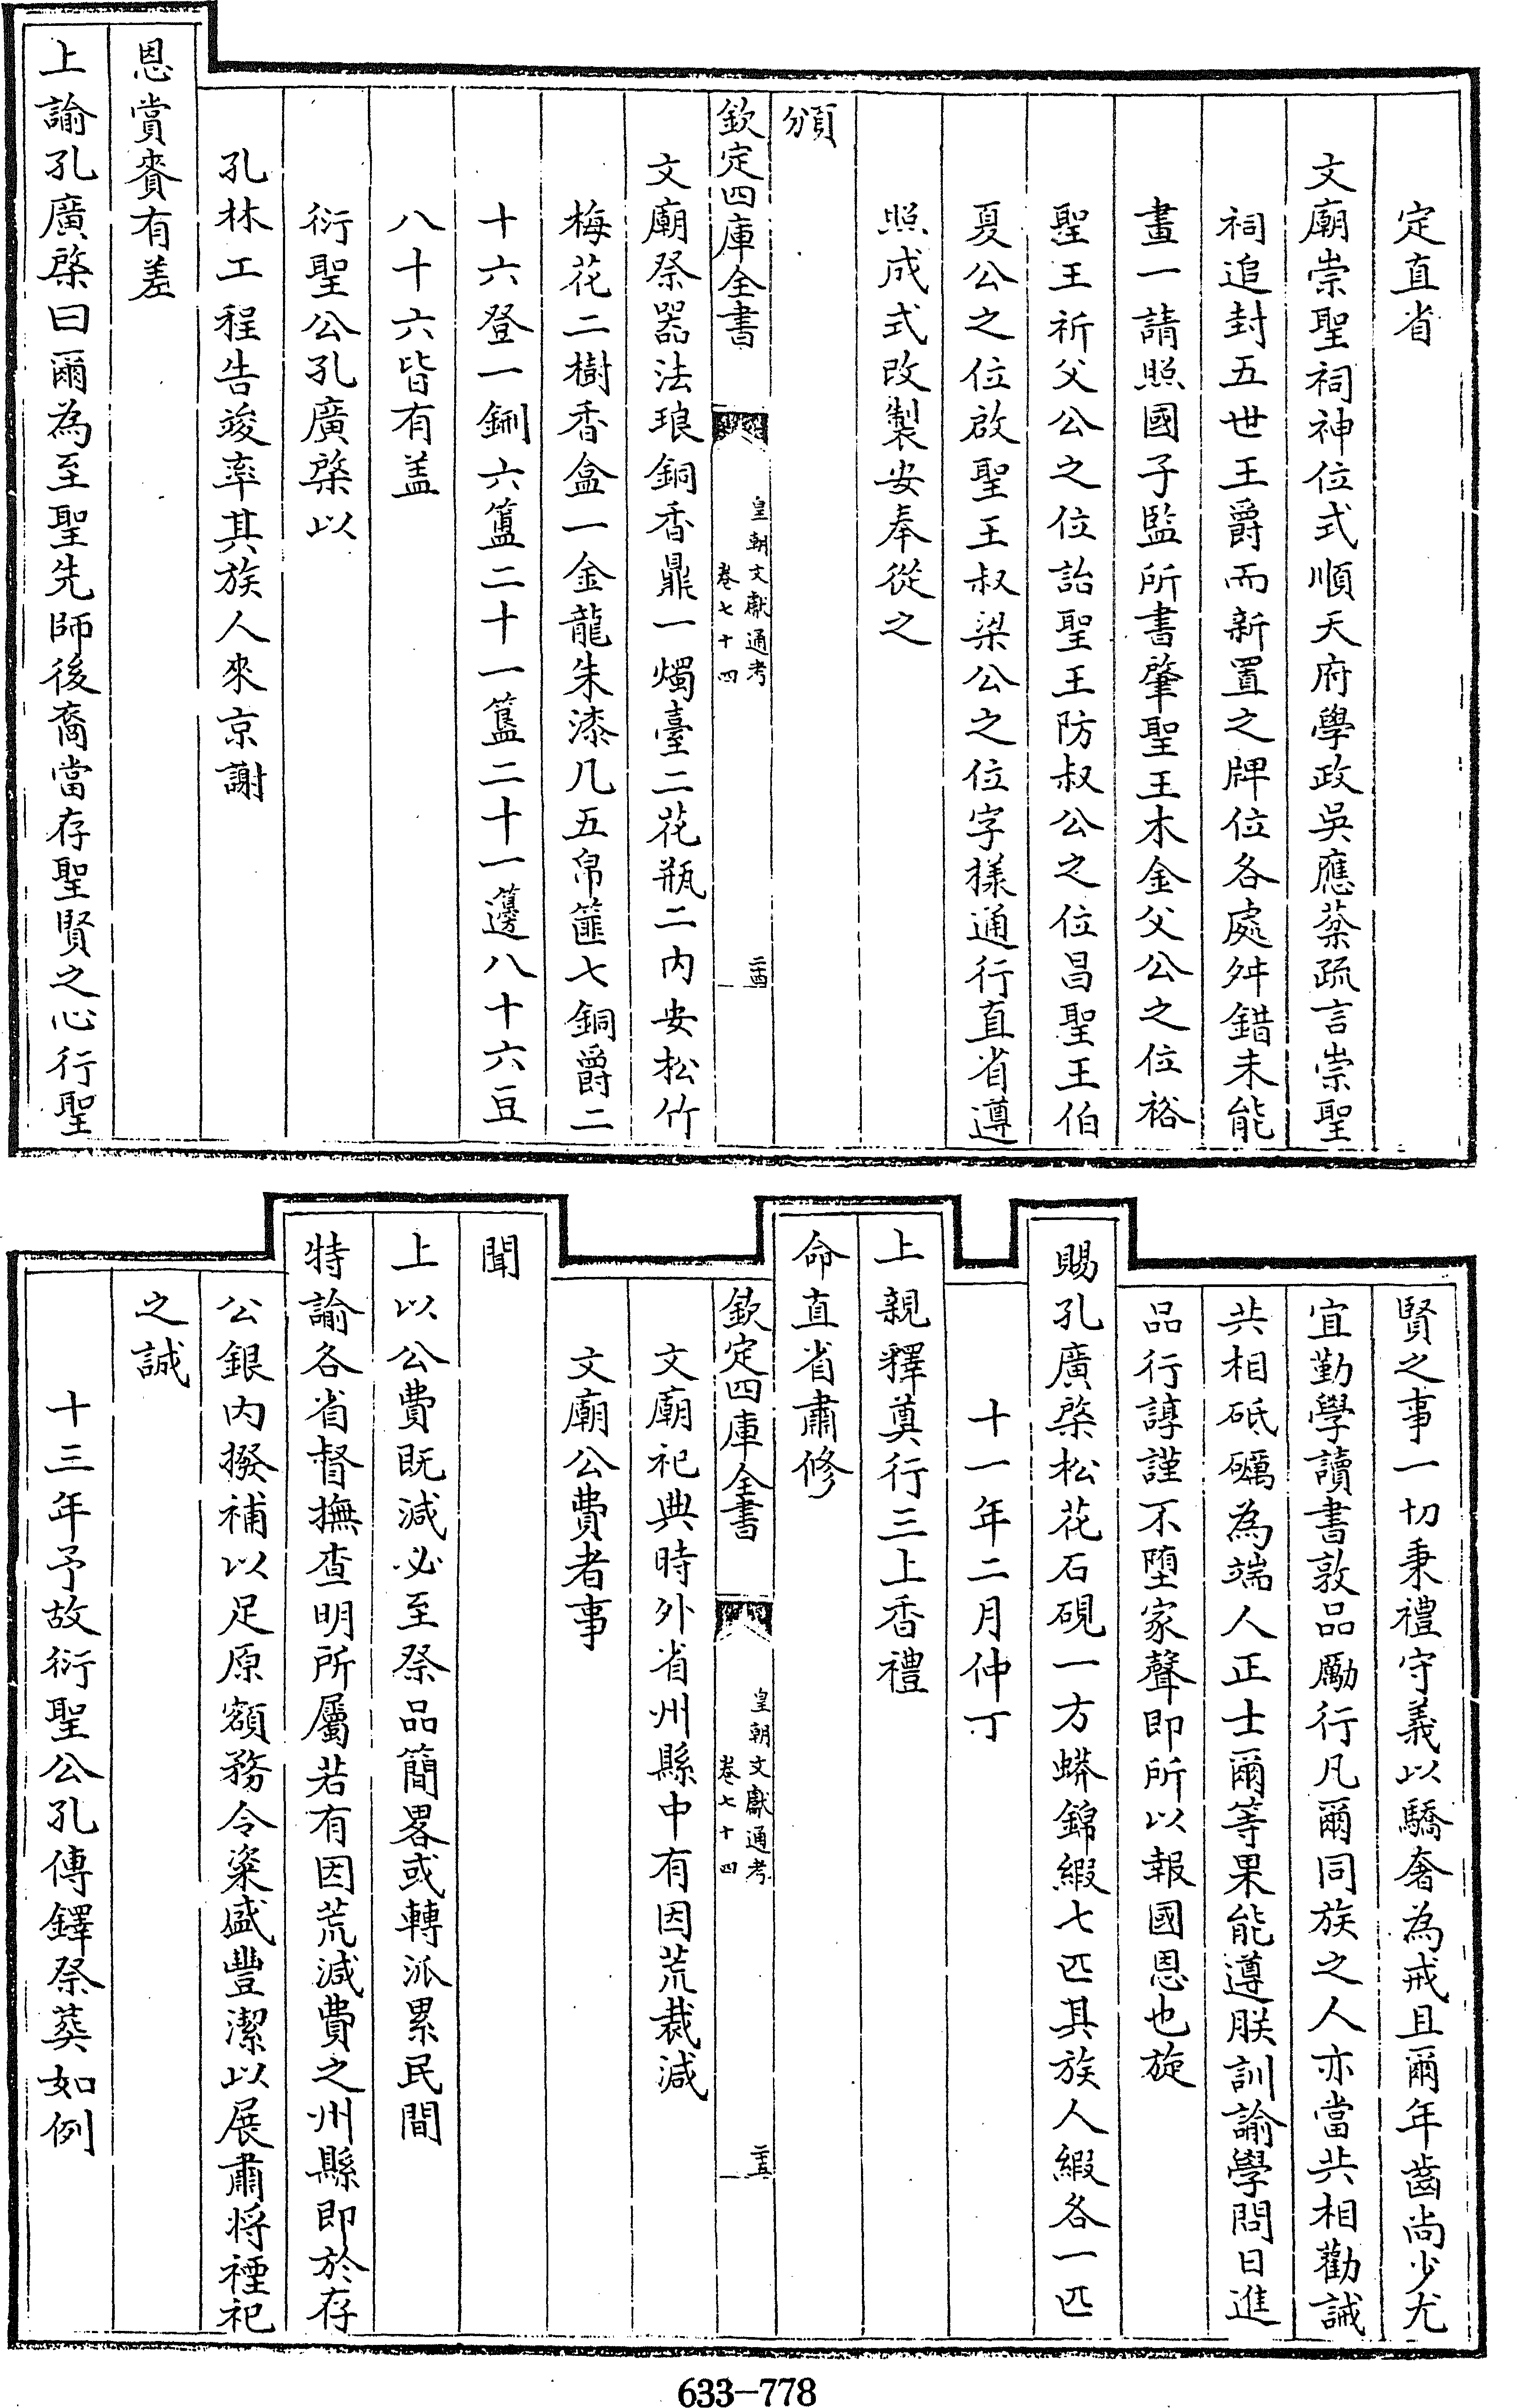 定直省
文廟崇聖祠神位式順天府學政吳應棻疏言崇聖
祠追封五世王爵而新置之牌位各處舛錯未能
畫一請照國子監所書肇聖王木金父公之位裕
聖王祈父公之位詒聖王防叔公之位昌聖王伯
夏公之位啟聖王叔梁公之位字樣通行直省遵
照成式改製安奉從之
頒
欽定四庫全書
皇朝文獻通考
卷七十四
二十四
文廟祭器法琅銅香鼎一燭臺二花瓶二內安松竹
梅花二樹香盒一金龍朱漆几五帛篚七銅爵二
十六登一鉶六簠二十一簋二十一籩八十六豆
八十六皆有盖
衍聖公孔廣棨以
孔林工程告竣率其族人來京謝
恩賞賚有差
上諭孔廣棨曰爾為至聖先師後裔當存聖賢之心行聖
賢之事一切秉禮守義以驕奢為戒且爾年齒尚少尤
宜勤學讀書敦品勵行凡爾同族之人亦當共相勸誡
共相砥礪為端人正士爾等果能遵朕訓諭學問日進
品行諄謹不墮家聲即所以報國恩也旋
賜孔廣棨松花石硯一方蟒錦緞七匹其族人緞各一匹
十一年二月仲丁
上親釋奠行三上香禮
命直省肅修
欽定四庫全書
皇朝文獻通考
卷七十四
二十五
文廟祀典時外省州縣中有因荒裁減
文廟公費者事
聞
上以公費既減必至祭品簡畧或轉派累民間
特諭各省督撫查明所屬若有因荒減費之州縣即於存
公銀內撥補以足原額務令粢盛豐潔以展肅將禋祀
之誠
十三年予故衍聖公孔傳鐸祭葬如例
633-778